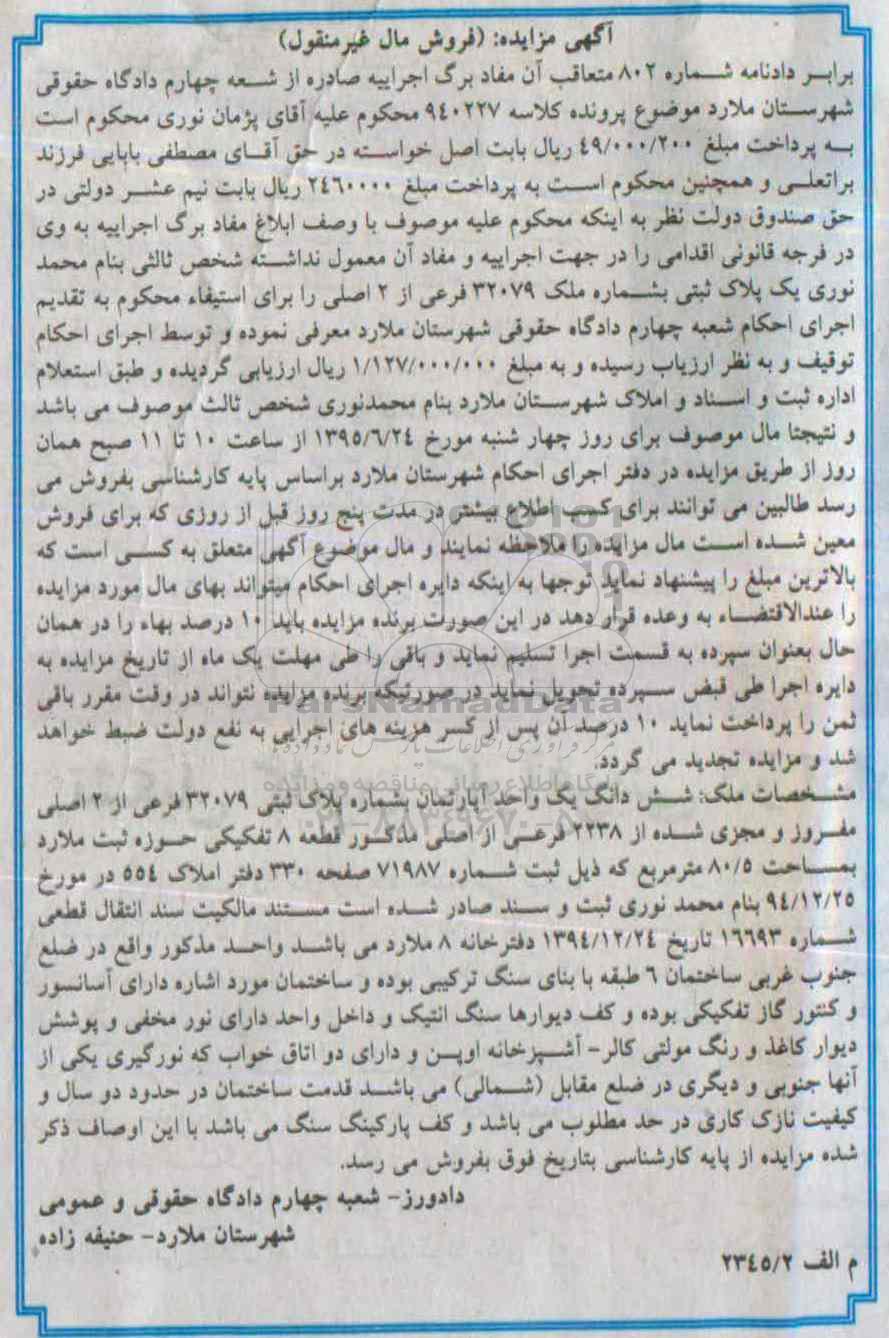 آگهی مزایده: (فروش مال غیرمنقول)
برابر دادنامه شماره ٨٠٢ متعاقب آن مفاد برگ اجراییه صادره از شعه چهارم دادگاه حقوقی
شهرستان ملارد موضوع پرونده کلاسه ٩٤٠٢٢٧ محکوم علیه آقای پژمان نوری محکوم است
به پرداخت مبلغ ٤٩/٠٠٠/٢٠٠ ریال بابت اصل خواسته در حق آقای مصطفی بابایی فرزند
براتعلی و همچنین محکوم است به پرداخت مبلغ ٢٤٦٠٠٠٠ ریال بابت نیم عشر دولتی در
حق صندوق دولت نظر به اینکه محکوم علیه موصوف با وصف ابلاغ مفاد برگ اجراییه به وی
در فرجه قانونی اقدامی را در جهت اجراییه و مفاد آن معمول نداشته شخص ثالثی بنام محمد
نوری یک پلاک ثبتی بشماره ملک ٣٢٠٧٩ فرعی از ٢ اصلی را برای استیفاء محکوم به تقدیم
اجرای احکام شعبه چهارم دادگاه حقوقی شهرستان ملارد معرفی نموده و توسط اجرای احکام
توقیف و به نظر ارزیاب رسیده و به مبلغ ١/١٢٧/٠٠٠/٠٠٠ ریال ارزیابی گردیده و طبق استعلام
اداره ثبت و اسناد و املاک شهرستان ملارد بنام محمدنوری شخص ثالث موصوف می باشد
و نتیجتا مال موصوف برای روز چهار شنبه مورخ ١٣٩٥/٦/٢٤ از ساعت ١٠ تا ١١ صبح همان
روز از طریق مزایده در دفتر اجرای احکام شهرستان ملارد براساس پایه کارشناسی بفروش می
رسد طالبین می توانند برای کسب اطلاع بیشتر در مدت پنج روز قبل از روزی که برای فروش
معین شده است مال مزایده را ملاحظه نمایند و مال موضوع آگهی متعلق به کسی است که
بالاترین مبلغ را پیشنهاد نماید توجها به اینکه دایره اجرای احکام میتواند بهای مال مورد مزایده
را عندالاقتضاء به وعده قرار دهد در این صورت برنده مزایده باید ١٠ درصد بهاء را در همان
حال بعنوان سپرده به قسمت اجرا تسلیم نماید و باقی را طی مهلت یک ماه از تاریخ مزایده به
دایره اجرا طی قبض سپرده تحویل نماید در صورتیکه برنده مزایده نتواند در وقت مقرر باقی
ParsNamadData
ثمن را پرداخت نماید ١٠ درصد آن پس از کسر هزینه های اجرایی به نفع دولت ضبط خواهد
شد و مزایده تجدید می گردد.
پایگاه اطلاع رسانی مناقصه و مزایده
مشخصات ملک: شش دانگ یک واحد آپارتمان بشماره پلاک ثبتی ٣٢٠٧٩ فرعی از ٢ اصلی
مفروز و مجزی شده از ٢٢٣٨ فرعی از اصلی مذکور قطعه ٨ تفکیکی حوزه ثبت ملارد
بمساحت ٨٠/٥ مترمربع که ذیل ثبت شماره ٧١٩٨٧ صفحه ٣٣٠ دفتر املاک ٥٥٤ در مورخ
٩٤/١٢/٢٥ بنام محمد نوری ثبت و سند صادر شده است مستند مالکیت سند انتقال قطعی
شماره ١٦٦٩٣ تاریخ ١٣٩٤/١٢/٢٤ دفترخانه ٨ ملارد می باشد واحد مذکور واقع در ضلع
جنوب غربی ساختمان ٦ طبقه با بنای سنگ ترکیبی بوده و ساختمان مورد اشاره دارای آسانسور
و کنتور گاز تفکیکی بوده و کف دیوارها سنگ انتیک و داخل واحد دارای نور مخفی و پوشش
دیوار کاغذ و رنگ مولتی کالر- آشپزخانه اوپن و دارای دو اتاق خواب که نورگیری یکی از
آنها جنوبی و دیگری در ضلع مقابل (شمالی) می باشد قدمت ساختمان در حدود دو سال و
کیفیت نازک کاری در حد مطلوب می باشد و کف پارکینگ سنگ می باشد با این اوصاف ذکر
شده مزایده از پایه کارشناسی بتاریخ فوق بفروش می رسد.
دادورز- شعبه چهارم دادگاه حقوقی و عمومی
شهرستان ملارد- حنیفه زاده
م الف ٢٣٤٥/٢